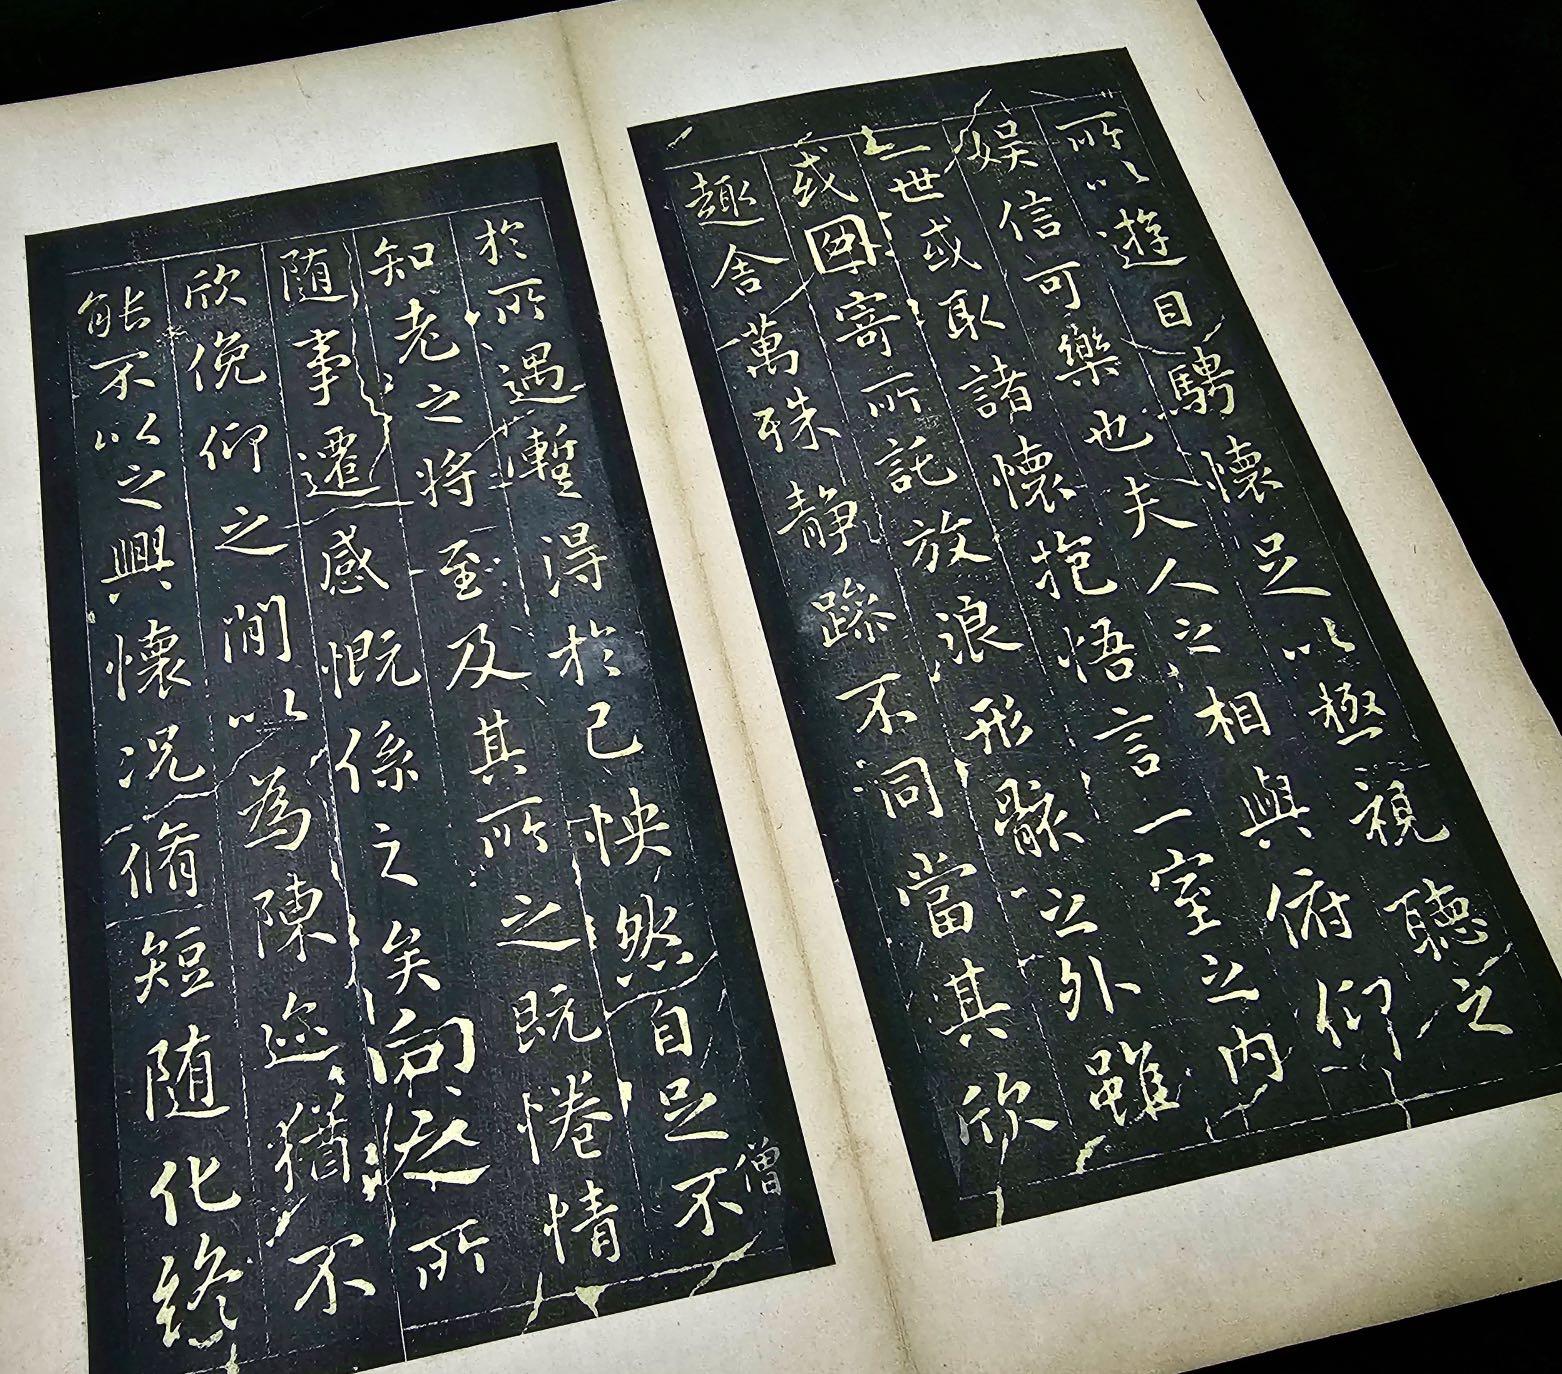 所以遊目騁懷足以極視聽之
娛信可樂也夫人之相與俯仰
一世或取諸懷抱悟言一室之內
或因寄所託放浪形骸之外雖
趣舍萬殊靜躁不同當其欣
於所遇暫得於己怏然自足不
僧
知老之將至及其所之既惓情
隨事遷感慨係之矣向之所
欣俛仰之間以為陳迹猶不
能不以之興懷況脩短隨化終